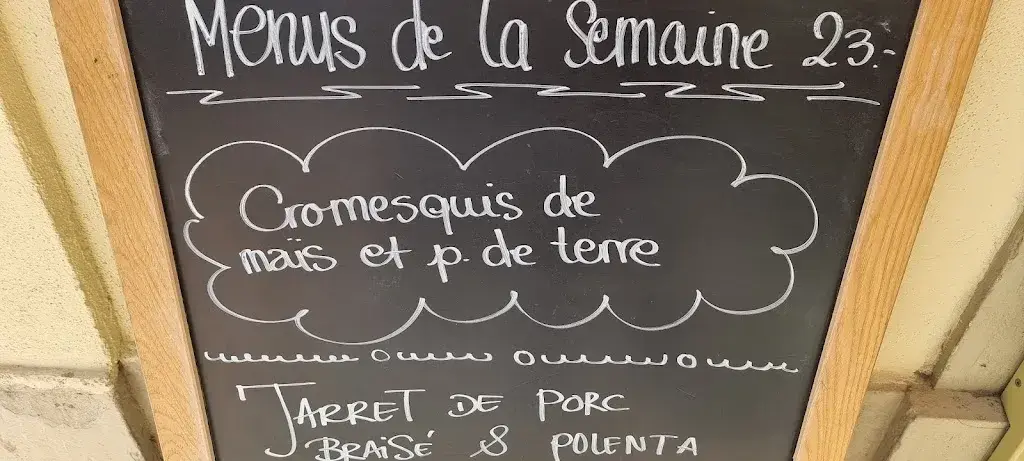 Menus de la Semaine 23.-
Cromesquis de
maïs et p. de terre
JARRET DE PORC
BRAISÉ & POLENTA